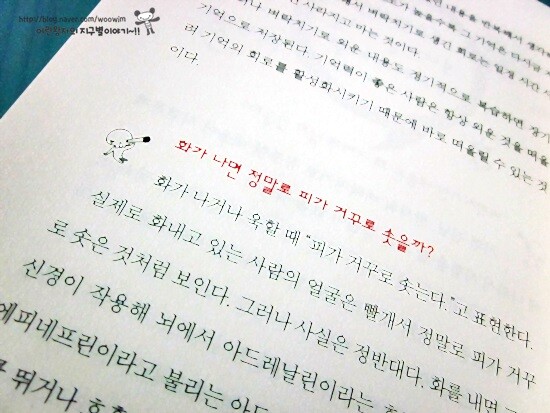 http://blog.naver.com/woowim
어린왕자의 지구별이야기~!!
내용을 반복해서 생각
높을수록 그 기억은 다시금
벼락치기로 생긴 회로는 일정 시간
사라지고 마는 것이다.
벼락치기로 외운 내용도 정기적으로 복습하면 장기
기억으로 저장된다. 기억력이 좋은 사람은 항상 외운 것을 떠올
려 기억의 회로를 활성화시키기 때문에 바로 떠올릴 수 있는 것
이다.
화가 나면 정말로 피가 거꾸로 솟을까?
화가 나거나 욱할 때 "피가 거꾸로 솟는다."고 표현한다.
실제로 화내고 있는 사람의 얼굴은 빨개서 정말로 피가 거꾸
로 솟은 것처럼 보인다. 그러나 사실은 정반대다. 화를 내면
신경이 작용해 뇌에서 아드레날린이라는
에피네프린이라고 불리는
뛰거나